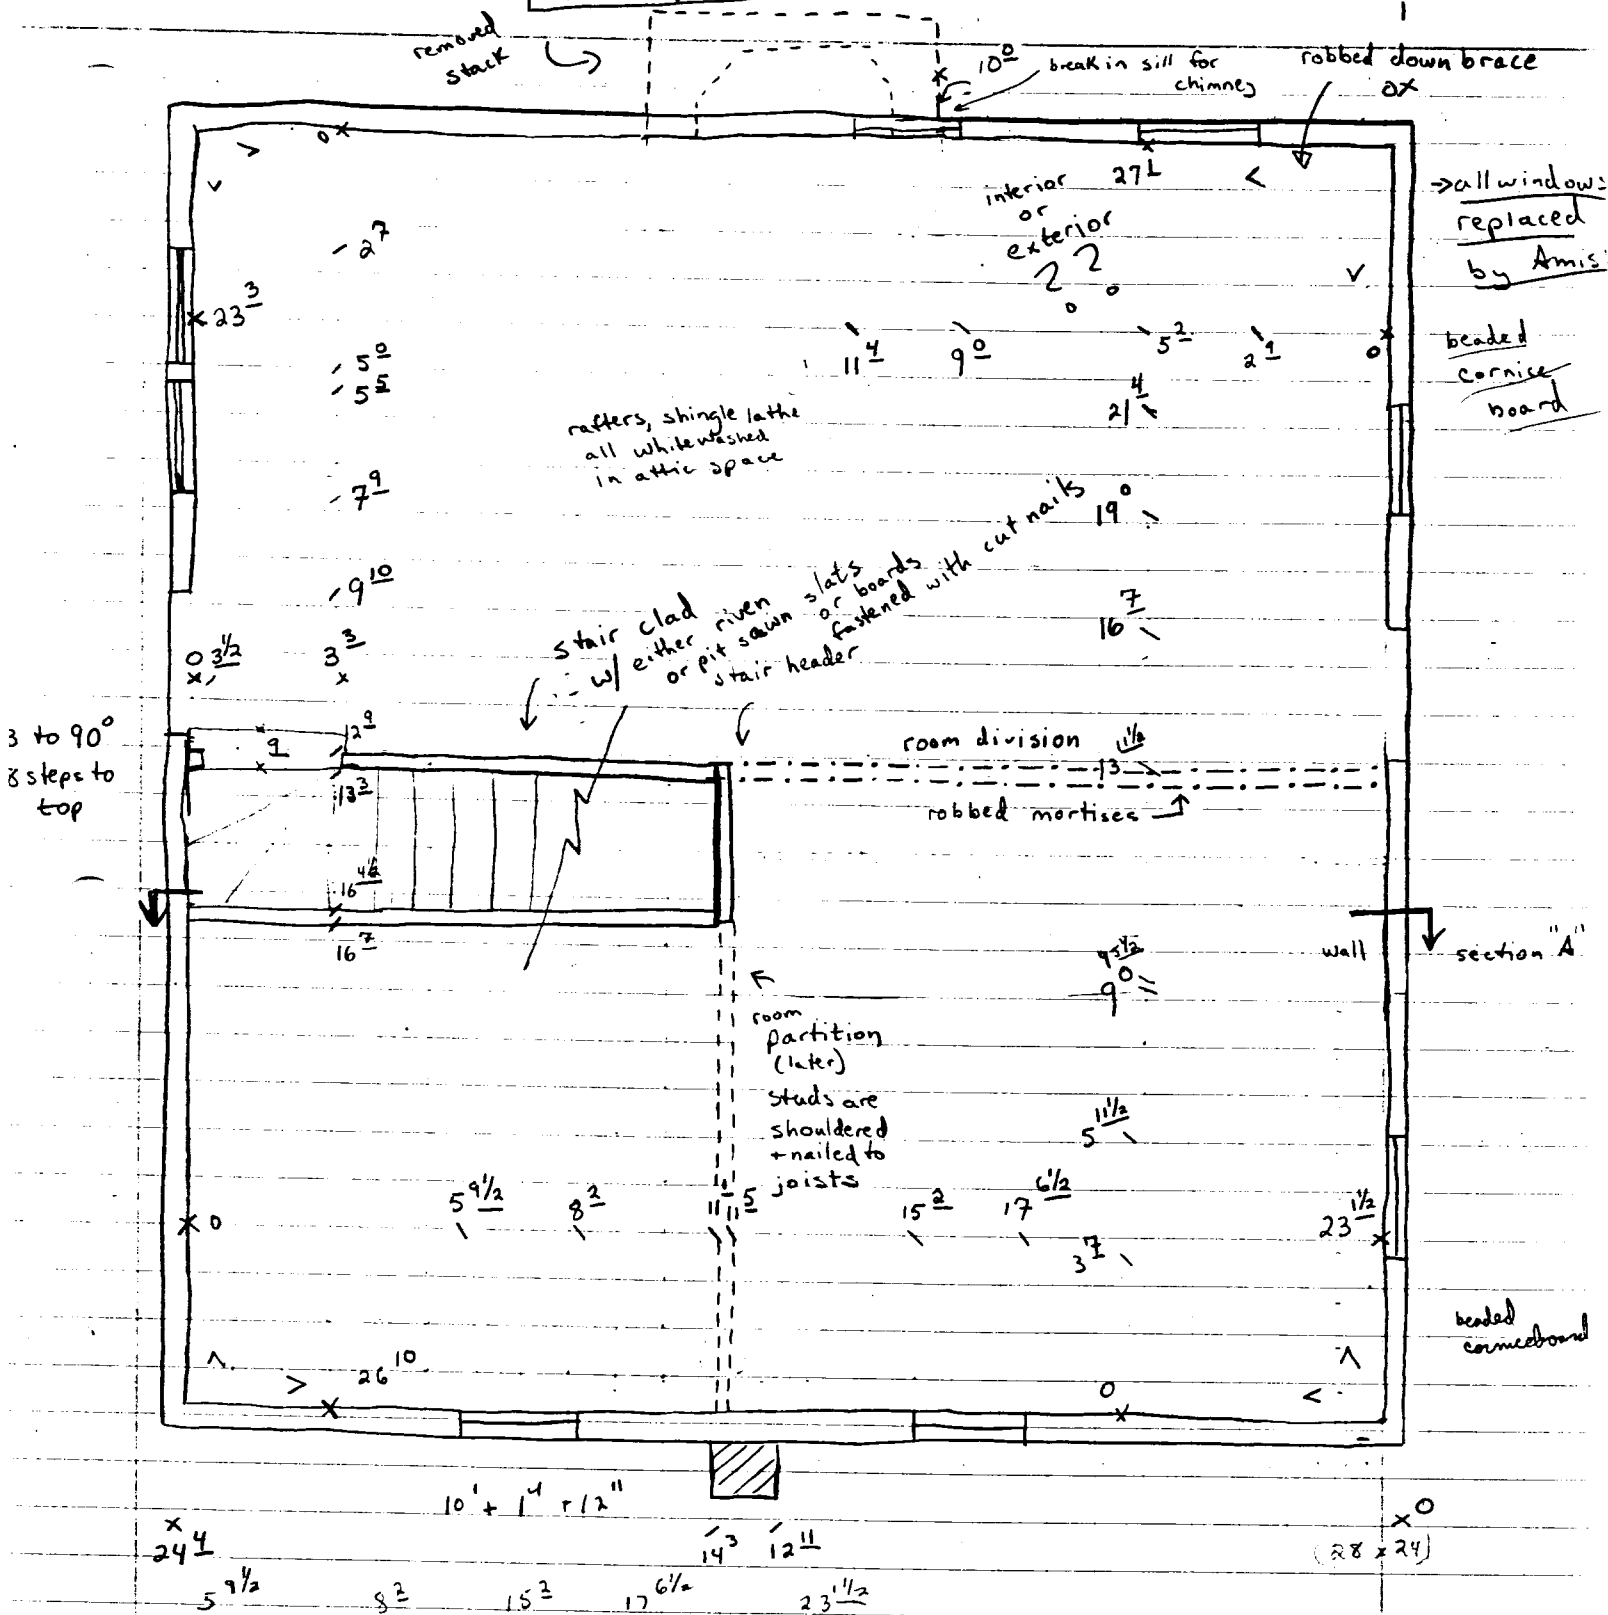 removed
stack
10 0
break in sill for
chimney
robbed down brace
0x
0
27 1
interior
or
exterior
??
→ all windows
replaced
by Amis
2 7
23 3
5 0
5 5
11 4
9 0
5 2
2 9
0
beaded
cornice
board
21 4
rafters, shingle lathe
all whitewashed
in attic space
7 9
19 0
9 10
16 7
stair clad
w/ either riven slats
or pit sawn or boards
fastened with cut nails
stair header
0 3 1/2
3 3
3 to 90°
8 steps to
top
9
2 9
13 3
room division
13 1 1/2
robbed mortises
16 4 1/2
16 7
wall
section "A"
9 5 1/2
9 0
room
partition
(later)
studs are
shouldered
+ nailed to
joists
5 11 1/2
0
5 9 1/2
8 2
11 5
15 2
17 6 1/2
3 7
23 1 1/2
beaded
corniceboard
26 10
0
10' + 1 4 + 12"
24 4
14 3
12 11
0
(28 x 24)
5 9 1/2
8 2
15 2
17 6 1/2
23 1 1/2